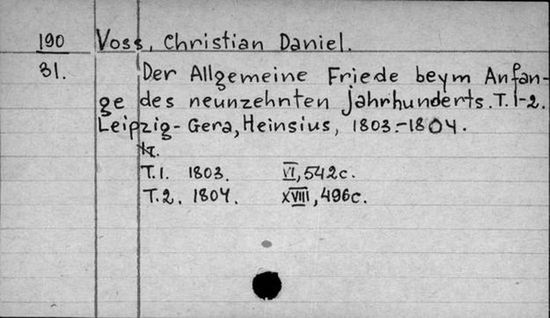 190 Voss, Christian Daniel.
31. Der Allgemeine Friede beym Anfan-
ge des neunzehnten Jahrhunderts. T. 1-2.
Leipzig-Gera, Heinsius, 1803.-1804.
T.1. 1803. VI, 542c.
T.2. 1804. XVIII, 496c.